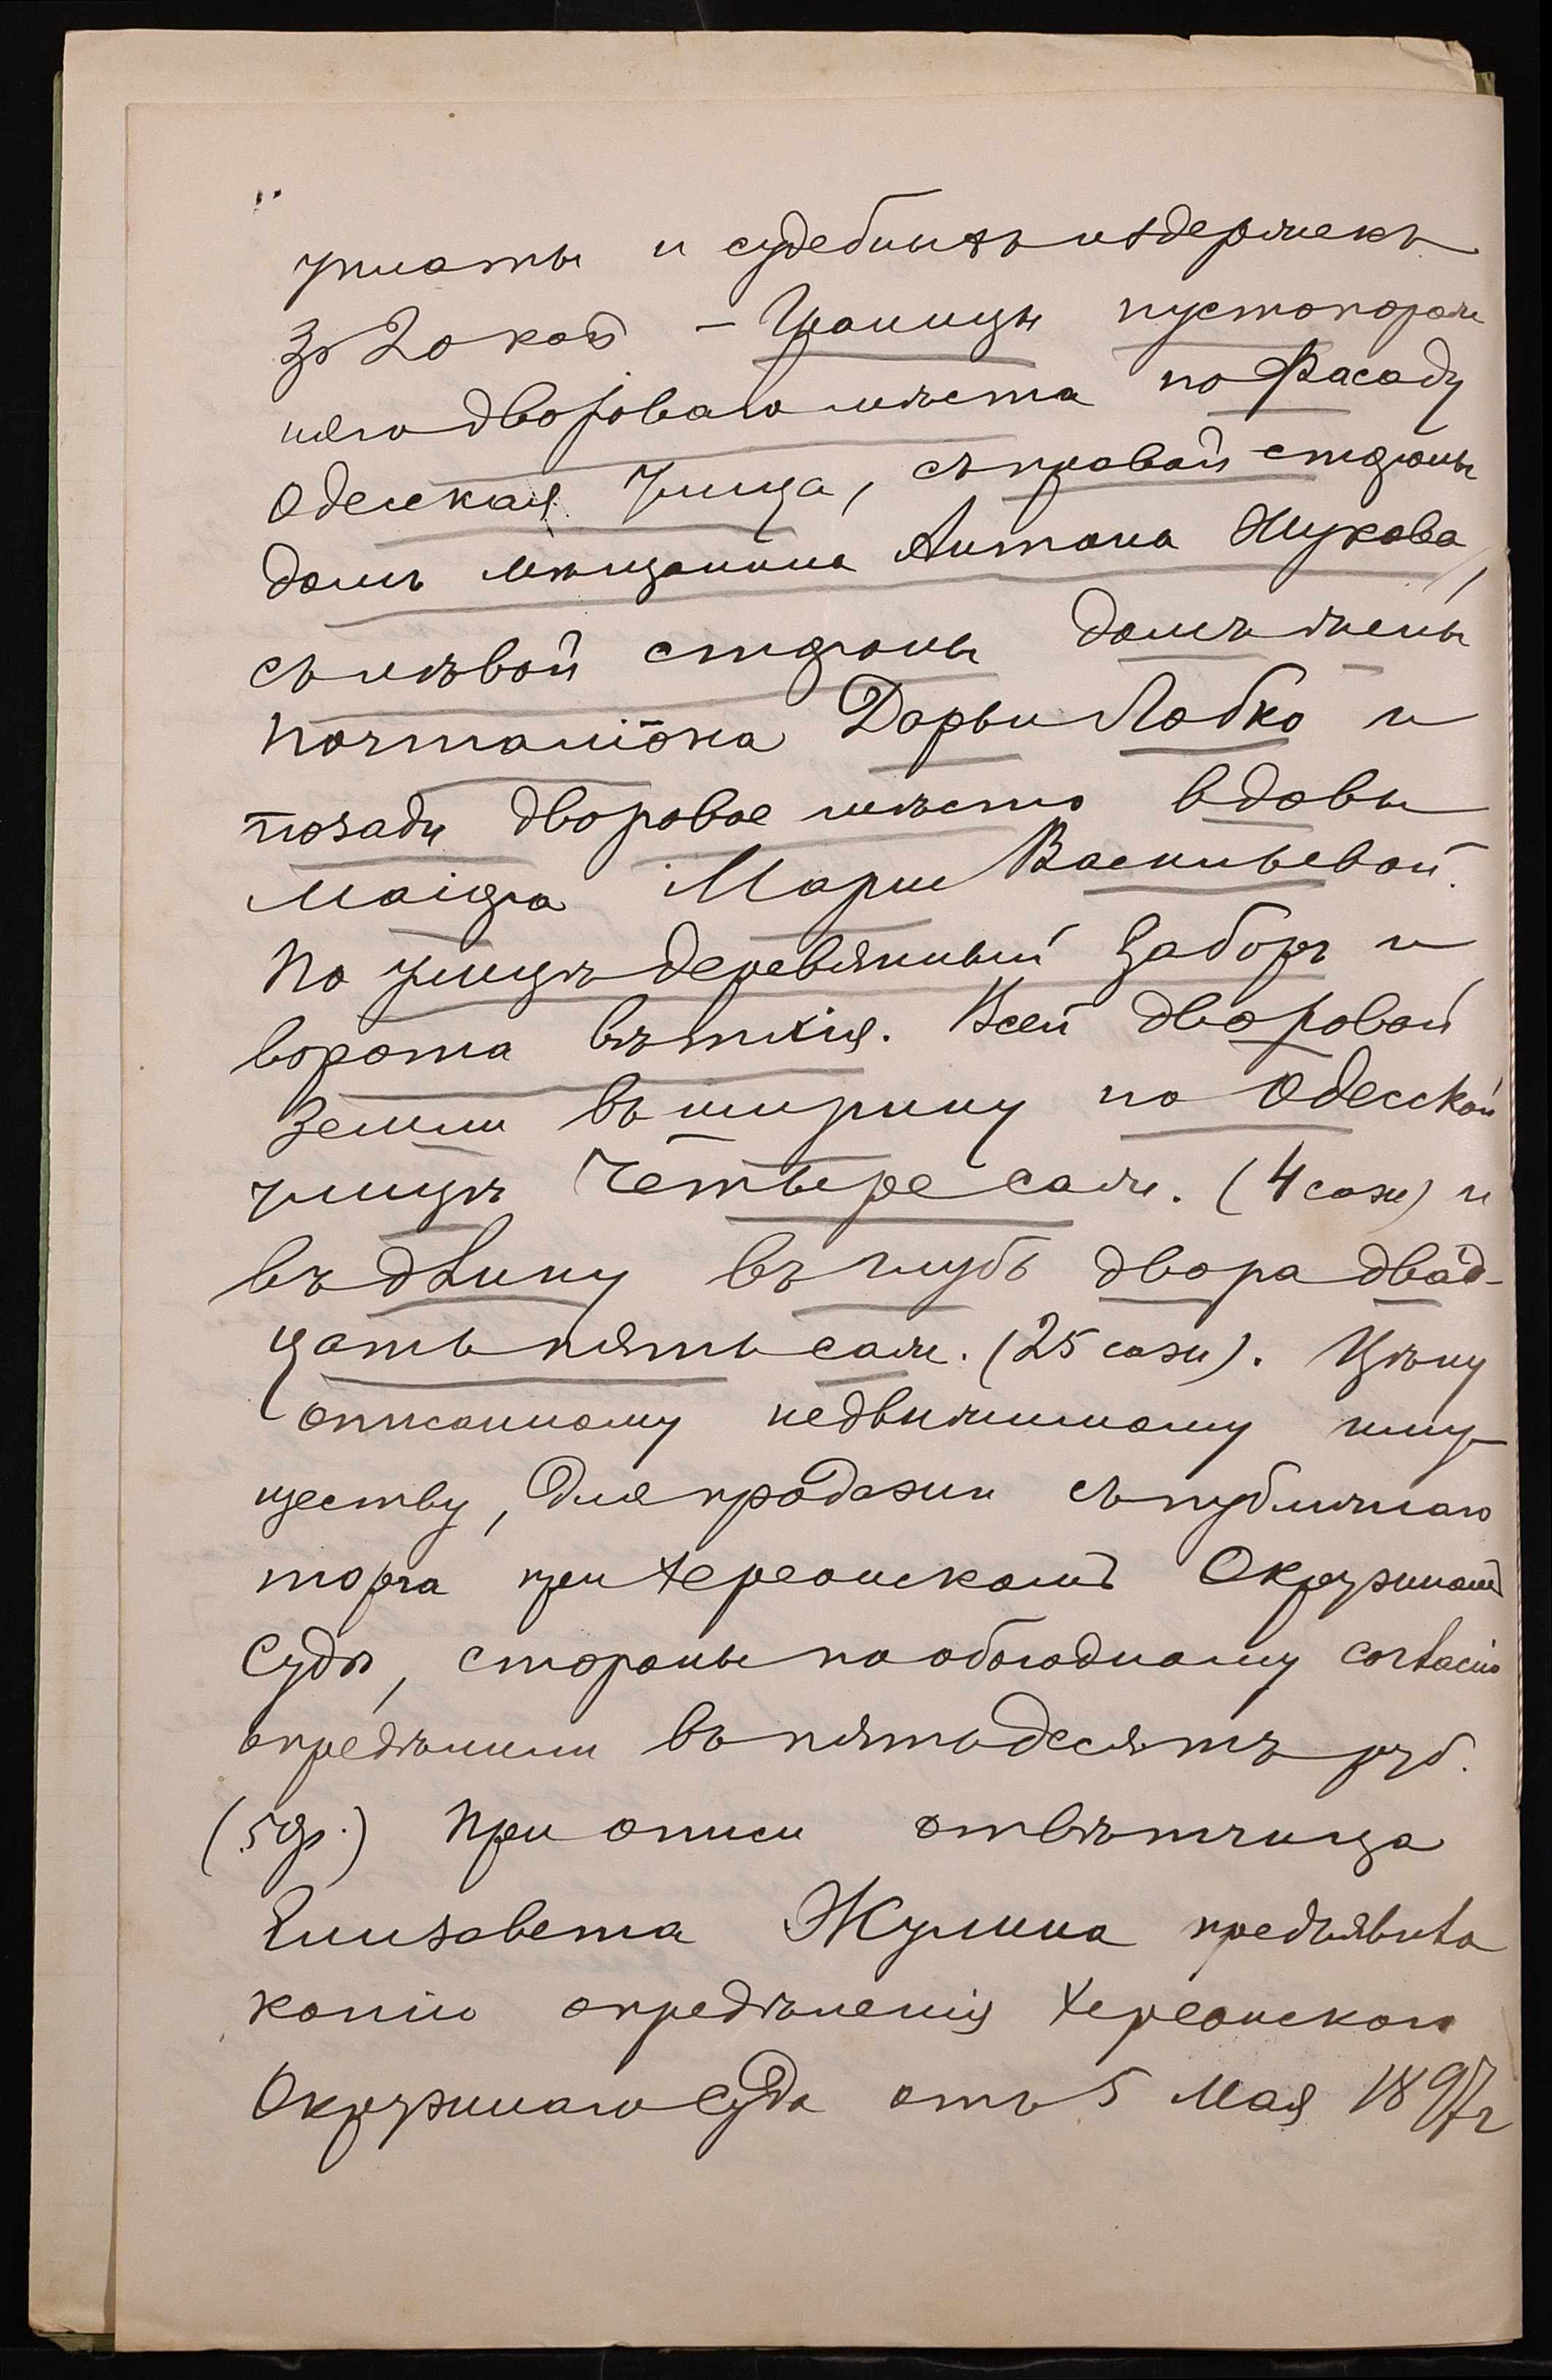 уплаты и судебныхъ издержекъ
3 р 20 коп – Границы пустопорож
няго дворового мѣста по Фасаду
Одесская Улица, съ правой стороны
домъ мѣщанина Антона Жукова,
съ лѣвой стороны домъ жены
почталіона Дарьи Лобко и
позади дворовое мѣсто вдовы
Маіора Маріи Васильевой.
По улицѣ деревянный заборъ и
ворота вѣтхія. Всей дворовой
земли въ ширину по Одесской
улицѣ Четыре саж. (4 саж) и
въ длину въ глубь двора двад-
цать пять саж. (25 саж). Цѣну
описанному недвижимому иму
ществу, для продажи съ публичнаго
торга при Херсонскомъ Окружномъ
Судѣ, стороны по обоюдному согласію
опредѣлили въ пятьдесятъ руб.
(50р.) При описи отвѣтчица
Елизавета Жулина предъявила
копію опредѣленія Херсонскаго
Окружнаго Суда отъ 5 Мая 1897г